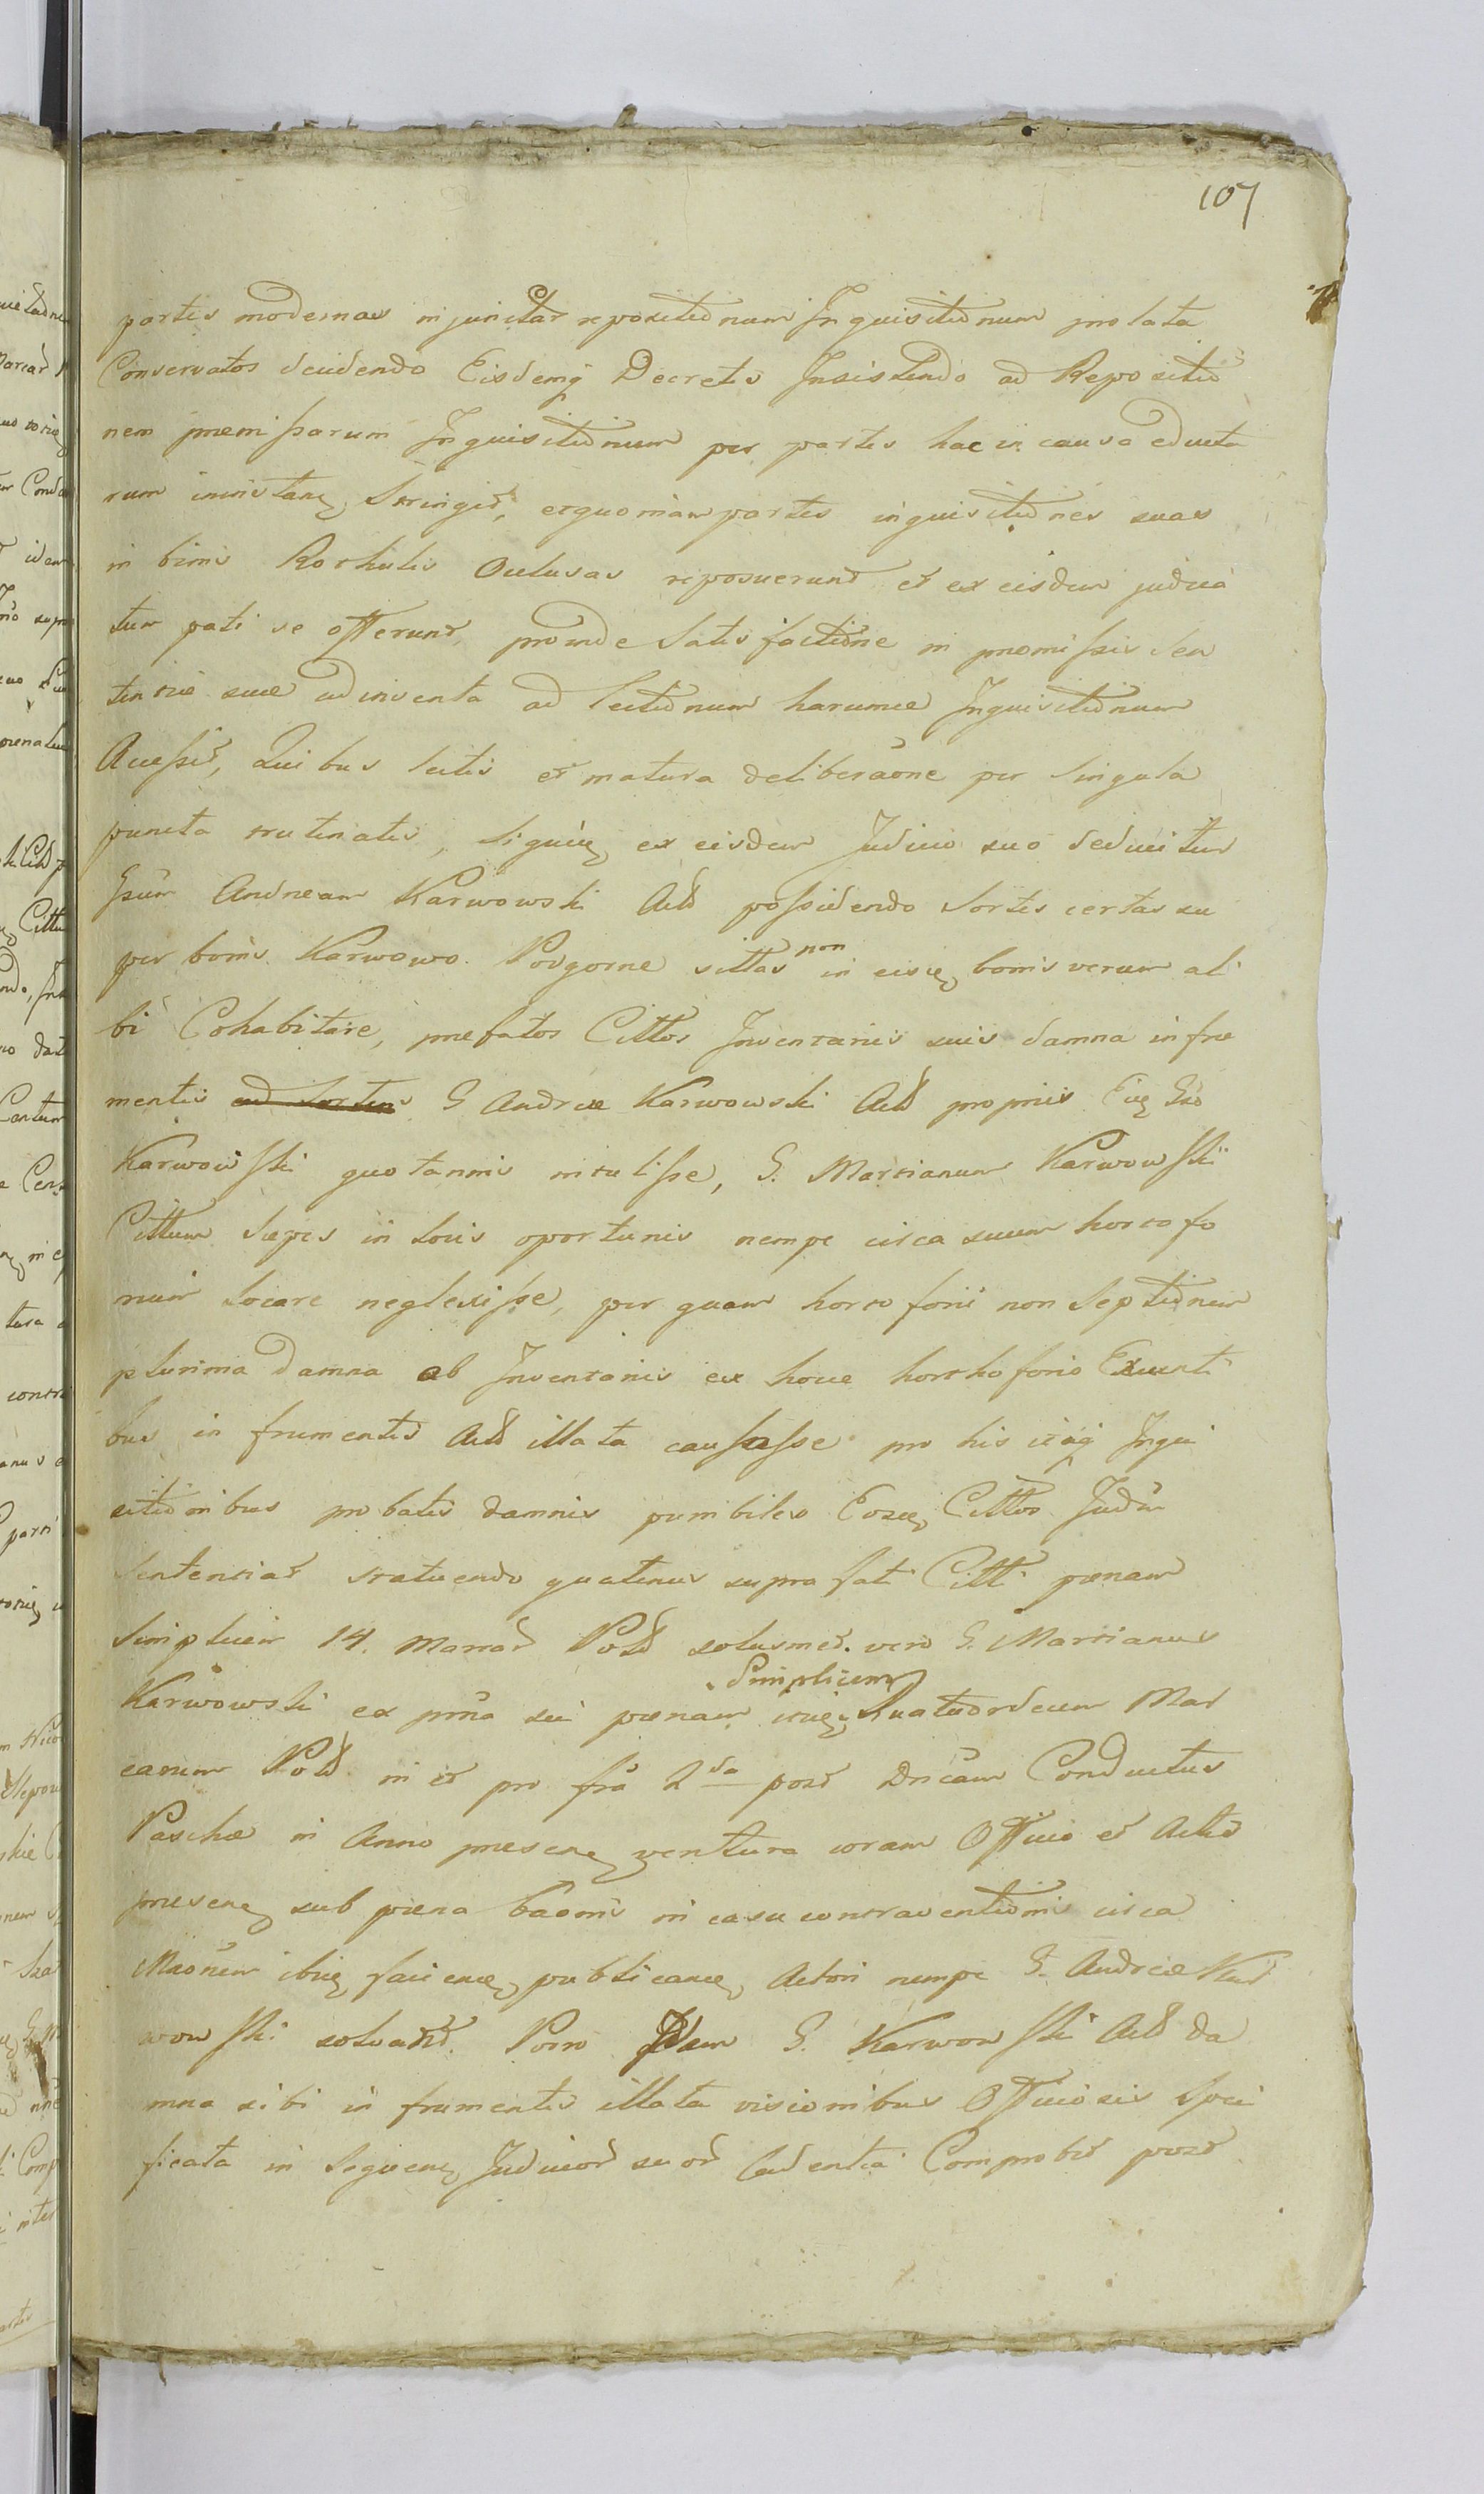 107
partes modernas injunctar repositionum Inquisitionum prolata
Conservatos decidendo Eisdemq Decretis Insistendo ad Repositio
nem premissarum Inquisitionum per partes hac in causa educta
rum stringit, et quoniam partes inquisitiones suas
in binis Rothulis Oclusas reposuerunt et ex eisdem judica
tum pati se offerunt, proinde Satisfactione in premissis Sen
tentiæ suæ adinventa ad lectionum harumce Inquisitionum
Acessit, Quibus lectis et matura deliberaone per Singula
puncta scrutinatis, siquidem ex eisdem Judicio suo deducitur
Gsum Andream Karwowski Act possidendo Sortes certas su
per bonis Karwowo Podgorne sittas non in bonis verum ali
bi Cohabitare, prefatos Cittos Inventariis suis damna in fru
mentis ad Sortem G Andreæ Karwowski Act propriis
Karwowski quotannis intulisse, G. Martianum Karwowski
Cittum Sæpes in Locis oportunis nempe circa suum hortofo
rium Locare neglexisse, per quam hortoforii non Septionem
plurima Damna ab Inventariis ex hocce horthoforio Exeunti
bus in frumentis Act illata causasse pro his itaq Inqui
sitionibus probatis damnis punibiles Cittos Judm
Sententiat statuendo quatenus suprafati Citti pœnam
Simplicem 14. Marcar Pol solusmet. vero G. Martianus
Karwowski ex prna sui pœnam Simplicem Quatuordecim Mar
carum Pol in et pro fra 2da post Dnicam Conductus
Paschæ in Anno presen ventura coram Officio et Actis
presen sub pœna baonis in casu contraventionis circa
faciend publicand Actori nempe G. Andreæ Kar
wowski solvant. Porro Idem G. Karwowski Act da
mna sibi in frumentis illata visionibus Officiosis Speci
ficata in Sequen Judicior suor Cadentia Comprobet post